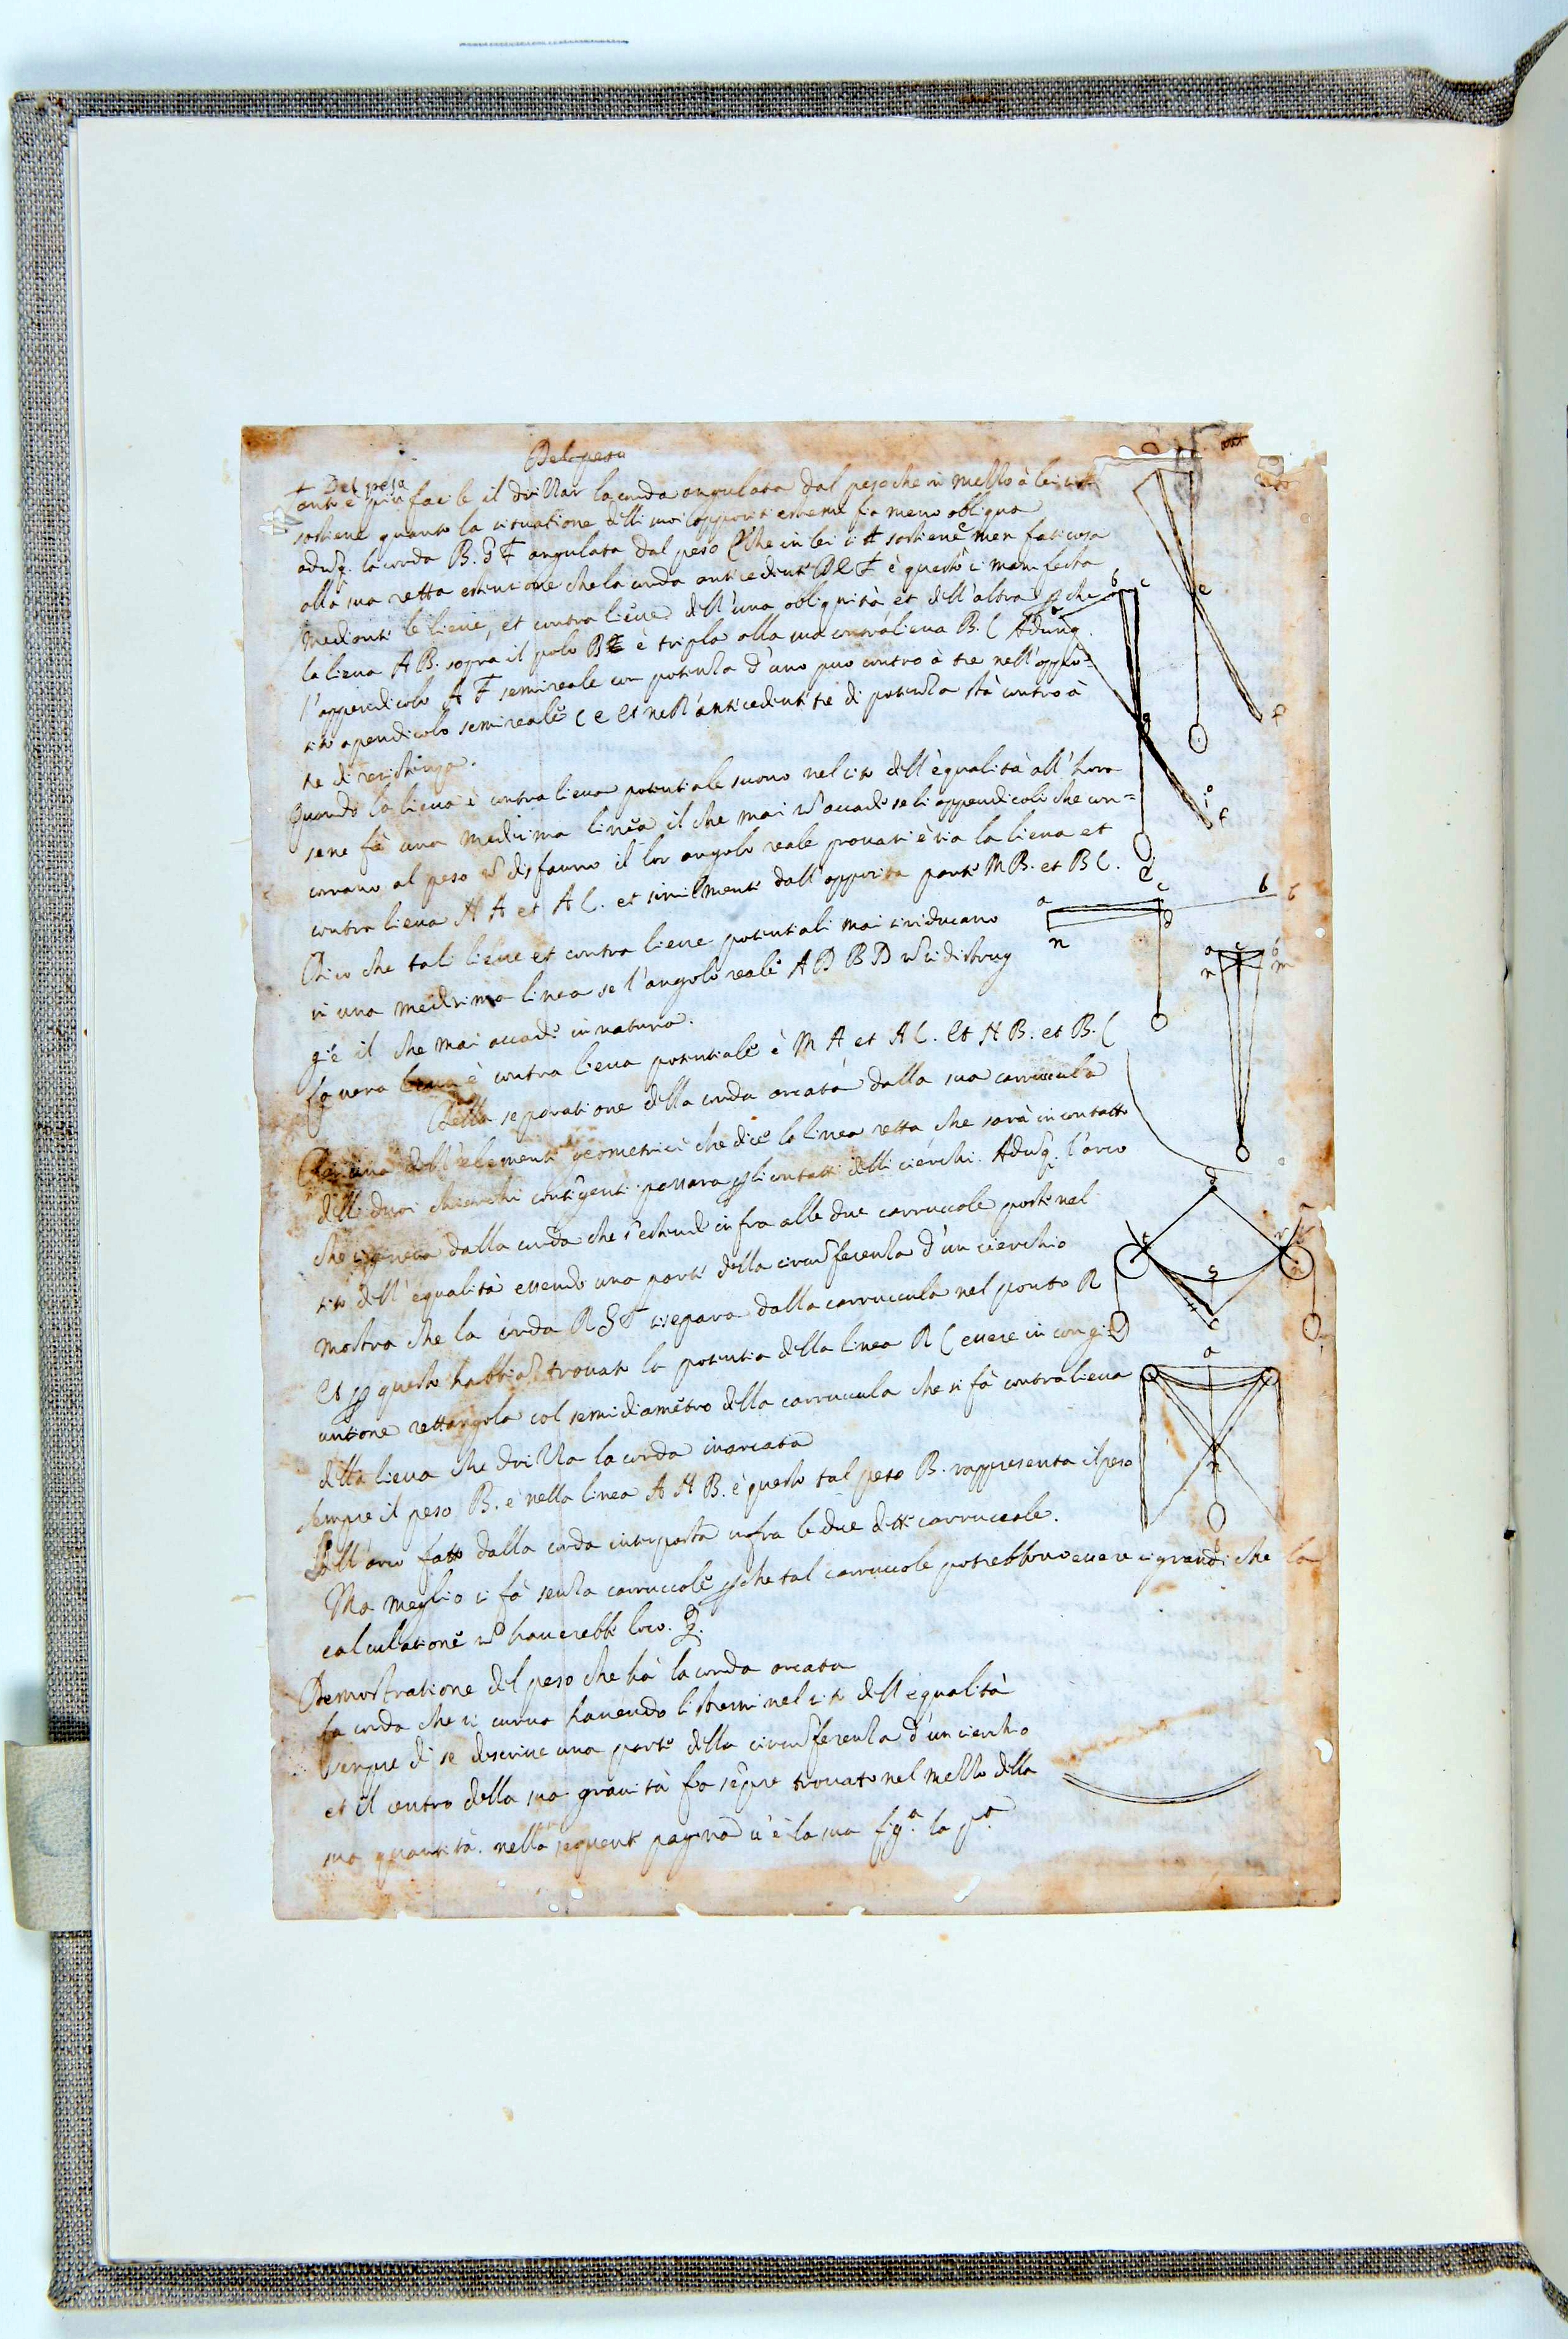 Del peso
Del peso
Tanto è più facile il drizzar la corda angulata dal peso che in mezzo à lei si
sostiene quanto la situatione delli suoi oppositi estremi fia meno obliqua
adunq. la corda B. G F angulata dal peso che in lei si sostiene è men faticosa
alla sua retta estensione che la corda antecedente è questo ci manifesta
mediante le lieue, et contra lieue dell'una obliquità, et dell'altra p che
la lieua A B. sopra il polo B è tripla alla sua contralieua B. C Adunq.
l'appendicolo A F semireale con potenza d'uno può contro à tre nell'oppo=
sito apendicolo semireale C e et nell'antecedente tre di potenza stà contro à
tre di resistenza.
Quando la lieua è contra lieua potentiale sono nel sito dell'equalità all'hora
sene fà una medesima linea il che mai nō accade se li appendicoli che con=
corrano al peso nō disfanno il lor angolo reale prouasi è sia la lieua et
contra lieua A et A C. et similmente dall'opposita parte M B. et B C.
Dico che tali lieue et contra lieue potentiali mai si riducano
in una medesima linea se l'angolo reale A D B D nō si distrug
gie il che mai accade in natura.
La uera lieua è contra lieua potentiale è M A et A C. et H B. et B. C
Della separatione della corda arcata dalla sua carrucula
dell'elementi geometrici che dice la linea retta che sarà in contatto
delli duoi chierchi contigenti passara p li contatti delli cierchi. Adunq. l'arco
che si genera dalla corda che s'estende infra alle due carruccole poste nel
sito dell'equalità essendo una parte della circunferenza d'un cierchio
mostra che la corda R S T si separa dalla carruccula nel ponto R
Et p questo habbiā trouato la potentia della linea R C essere in congi
untione rettangola col semidiametro della carruccula che si fà contralieua
della lieua che drizza la corda inarcata
Sempre il peso B. è nella linea A H B. è questo tal peso B. rappresenta il peso
dell'arco fatto dalla corda interposta infra le due dette carruccole.
Ma meglio si fà senza carruccole p che tal carruccole potrebbono essere si grandi che la
calculatione nō hauerebbe loco.
Demostratione del peso che hà la corda arcata
La corda che si curua hauendo li stremi nel sito dell'equalità
sempre di se descriue una parte della circunferenza d'un cierchio
et il centro della sua grauità fa sēpre trouato nel mezzo della
sua quantità. nella seguente pagina u'è la sua fig.ª la p.ª
b c
e
f
g
o
i
f
d
a c b
n d
a c b
n m
d
t r
s
n
c
a
n